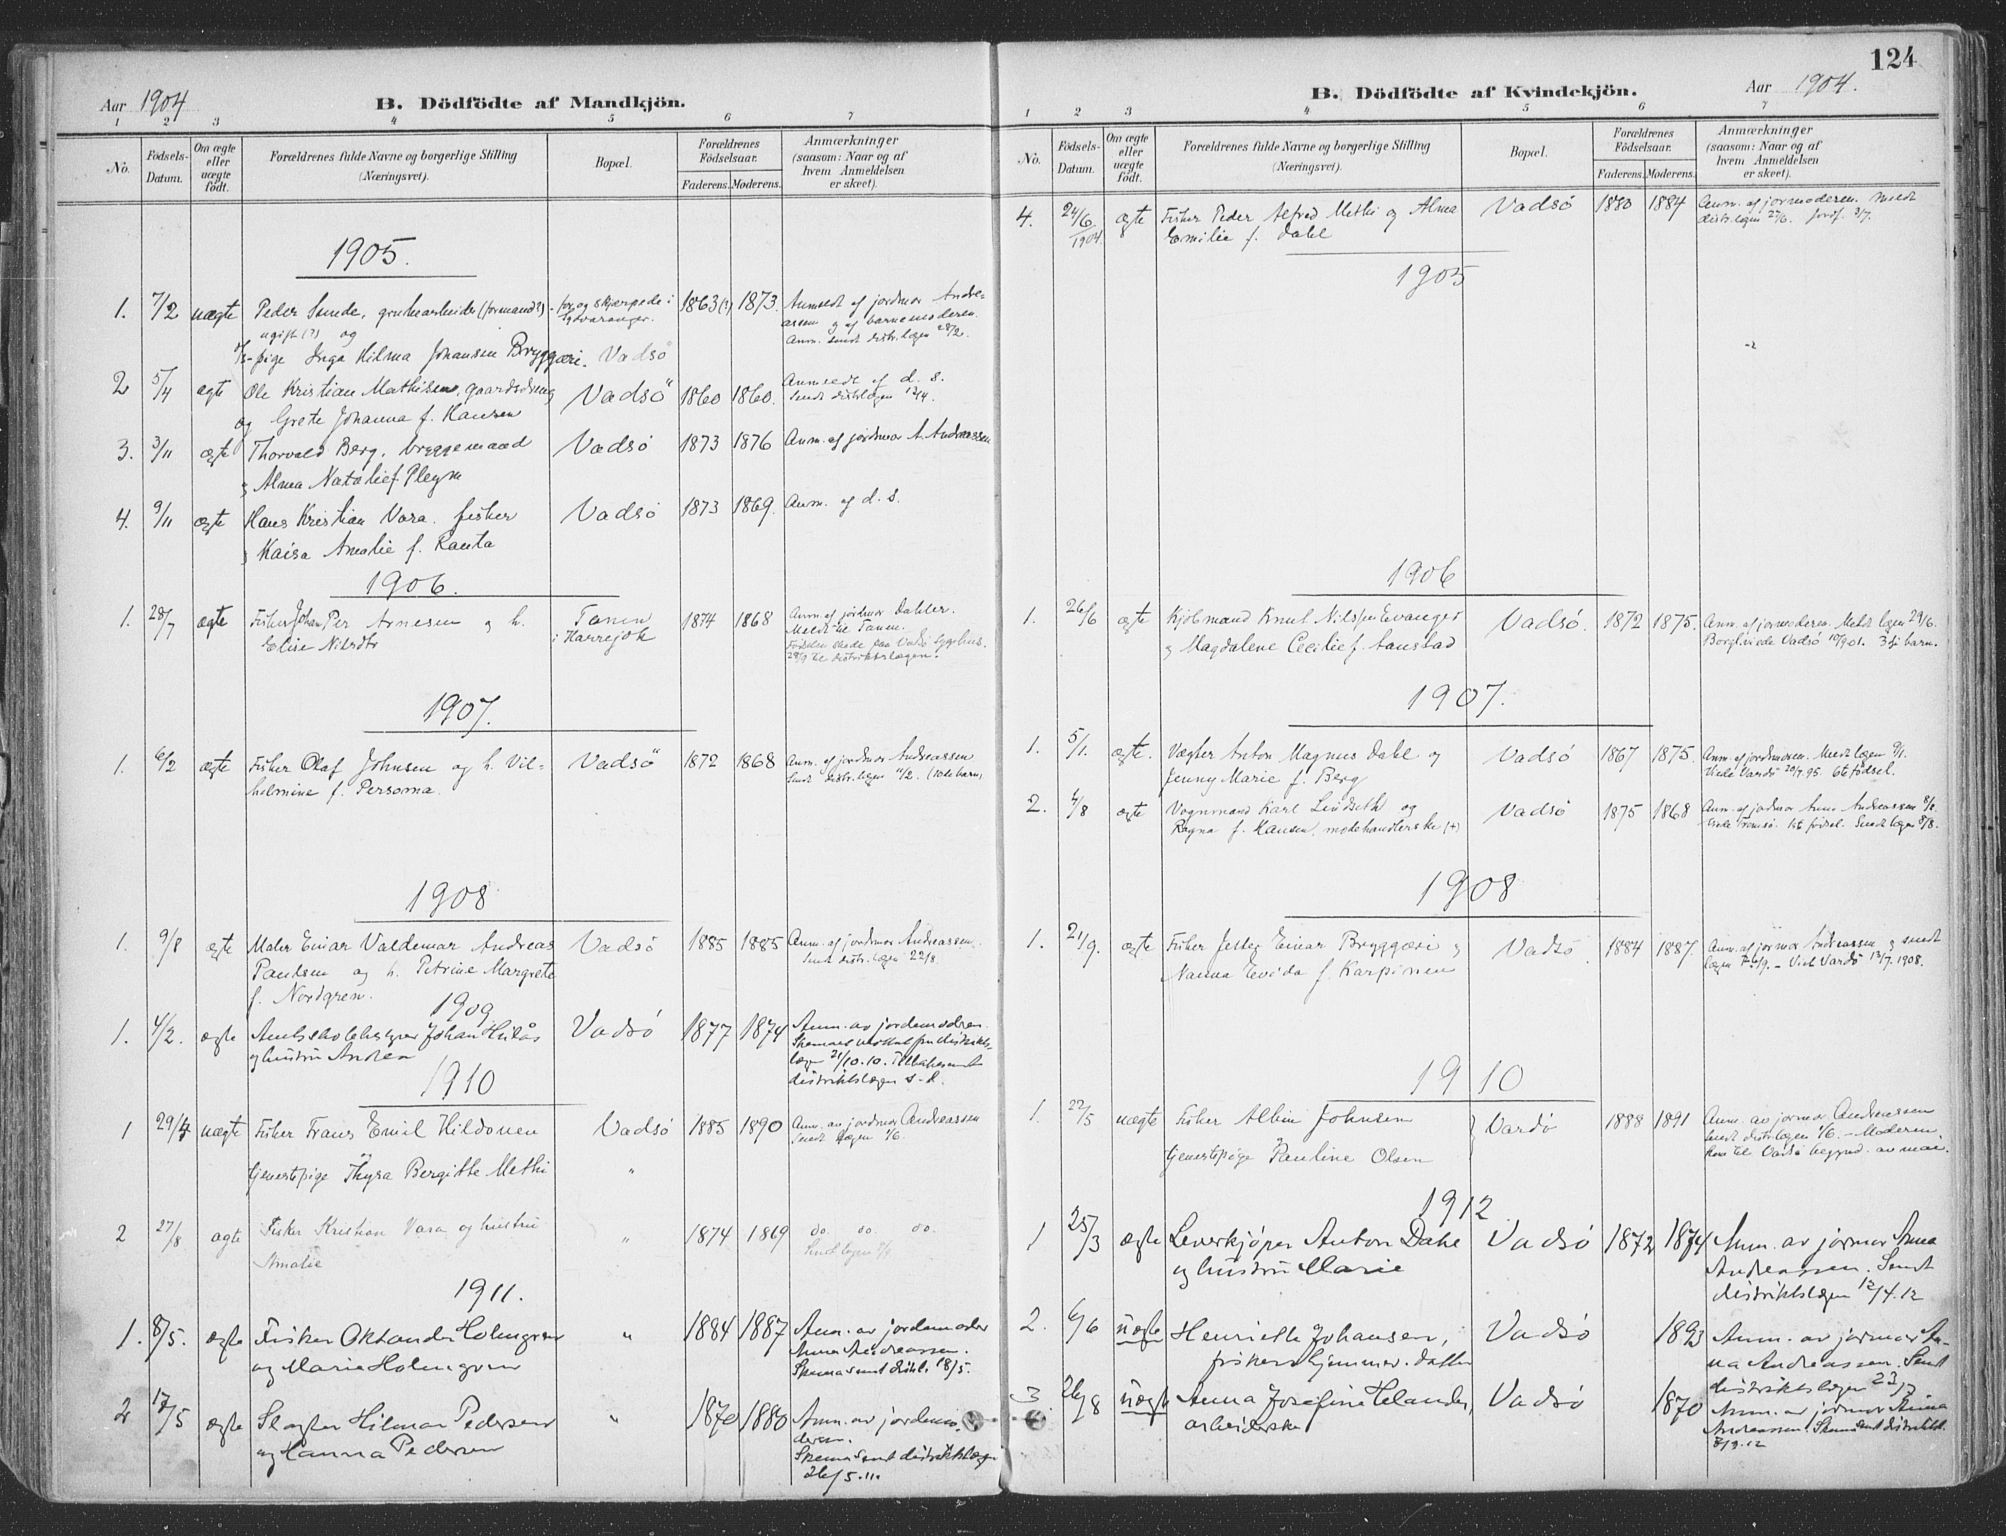 Aar 1904
B. Dödfödte af Mandkjön.
1 2 3 4 5 6 7
No.
Födsels-Datum.
Om ægte eller uægte födt.
Forældrenes fulde Navne og borgerlige Stilling
(Næringsvei).
Bopæl.
Forældrenes Födselsaar.
Faderens. Moderens.
Anmærkninger
(saasom: Naar og af
hvem Anmeldelsen
er skeet).
1905.
1. 7/2 uægte Peder Sunde, grubearbeider (formand?) for og skjærpede i 1863(?) 1873. Anmeldt af jordmor Andre-
ugift (?) og Sydvaranger. assen og af barnemoderen.
pige Inga Hilma Johansen Bryggari. Vadsö Anm. sendt distr.lægen 28/2.
2 5/4 ægte Ole Kristian Mathisen, gaardsdreng Vadsö 1860 1860. Anmeldt af d. s.
og Grete Johanna f. Hansen sendt distrlægen 12/4.
3. 3/11 ægte Thorvald Berg, bryggemand Vadsö 1873 1876 Anm. af jordmor A. Andreassen
og Alma Natalie f. Pleym
4. 9/11 ægte Hans Kristian Vara. fisker Vadsö 1873 1869. Anm. af d. s.
og Kaisa Amalie f. Ranta
1906.
1. 28/7 ægte Fisker Johan Per Arnesen og h. Tanen 1874 1868 Anm. af jordmor Dahler.
Elise Nilsdtr i Harrejok Meldt til Tanen.
Födslen skede paa Vadsö sygehus.
28/9 til distriktslægen.
1907.
1. 6/2 ægte Fisker Olaf Johnsen og h. Vil- Vadsö 1872 1868 Anm. af jordmor Andreassen
helmine f. Persoma. Sendt distr.lægen 11/2. (10de barn)
1908
1. 9/8 ægte Maler Einar Valdemar Andreas Vadsö 1885 1885 Anm. af jordmor Andreassen.
Paulsen og h. Petrine Margrete Sendt distr.lægen 22/8.
f. Nordgren.
1909.
1. 4/2. ægte Amtsskolebestyrer Johan Hilås Vadsö 1877 1874 Anm. av jordemoderen.
og hustru Andrea Skemaet mottat fra distrikts-
lægen 21/10.10. Tilbakesendt
distriktslægen s. d.
1910
1 29/4 uægte Fisker Frans Emil Hildonen Vadsö 1885 1890 Anm. av jordmor Andreassen
Sendt lægen 1/6.
tjenestepige Thyra Bergitte Methi "
2 27/8 ægte Fisker Kristian Vara og hustru " 1874 1869 do. do. do.
Amalie Sendt lægen 9/9
1911.
1. 8/5. ægte Fisker Oktander Holmgren " 1884 1887 Anm. av jordemoder
og Marie Holmgren Anna Andreassen.
Skema sendt distr. 18/5.
2 17/5 ægte Slagter Hilmar Pedersen " 1870 1880 Anm. av jordemo-
og Hanna Pedersen deren.
Skema sendt distriktslægen
26/5.11.
124
B. Dödfödte af Kvindekjön.
Aar 1904.
1 2 3 4 5 6 7
No.
Födsels-Datum.
Om ægte eller uægte födt.
Forældrenes fulde Navne og borgerlige Stilling
(Næringsvei).
Bopæl.
Forældrenes Födselsaar.
Faderens. Moderens.
Anmærkninger
(saasom: Naar og af
hvem Anmeldelsen
er skeet).
4. 24/6 1904. ægte Fisker Peder Alfred Methi og Alma Vadsö 1880 1884 Anm. af jormoderen. Meldt
Emilie f. Dahl distr.lægen 27/6. Jordf. 2/7.
1905
1906
1. 26/6 ægte Kjöbmand Knut Nilssen Evanger Vadsö. 1872 1875. Anm. af jormoderen. Meldt lægen 29/6.
og Magdalene Cecilie f. Aanstad Borgl. viede Vadsö 10/9 01. 3dje barn.
1907.
1. 5/1. ægte. Vægter Anton Magnus Dahl og Vadsö 1867 1875. Anm. af jordmoren. Meldt lægen 9/1.
Jenny Marie f. Berg Viede Vardö 20/7.95. 6te födsel.
2. 4/8 ægte Vognmand Karl Lindseth og Vadsö 1875 1868 Anm. af jordmor Anna Andreassen 8/8
Ragna f. Hansen, modehandlerske (+) Viede Tromsö. 1st födsel. Sendt lægen 8/8.
1908
1. 21/9. ægte Fisker Jesten Einar Bryggæri og Vadsö 1884 1887. Anm. af jormor Andreassen og sendt
Nanna Evida f. Karpinen lægen /9. – Viet Vardö 13/7.1908.
1910
1. 22/5 uægte Fisker Albin Johnsen Vardö 1888 1891 Anm. av jormor Andreassen
sendt distrlægen 1/6. – Moderen
tjenestepige Pauline Olsen kom til Vadsö begynd. av mai.
1912
1 25/3 ægte Leverkjöper Anton Dahl Vadsö 1872 1874 Anm. av jormor Anna
og hustru Marie Andreassen. Sendt
distriktslægen 12/4.12
2. 6/6 uægte Henriette Johansen, Vadsö 1893 Anm. av jormor An-
fisker datter na Andreassen. Sendt
distriktslægen 23/7
3. 26/8 uægte Anna Josefine Helander, Vadsö 1870 Anm. av jormor Anna
arbeiderske Andreassen. Skema sendt distriktsl.
3/9.12